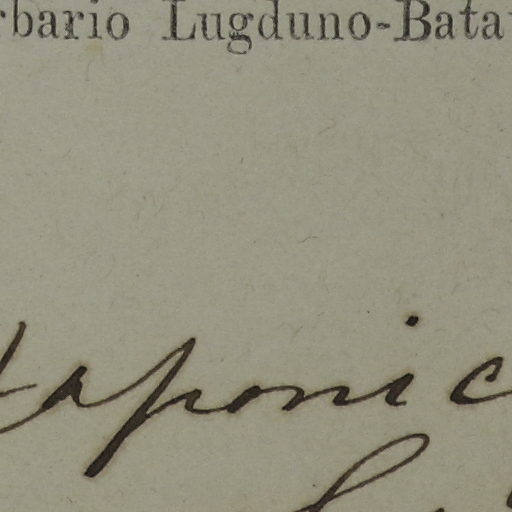 rbario Lugduno-Bata
Japonic